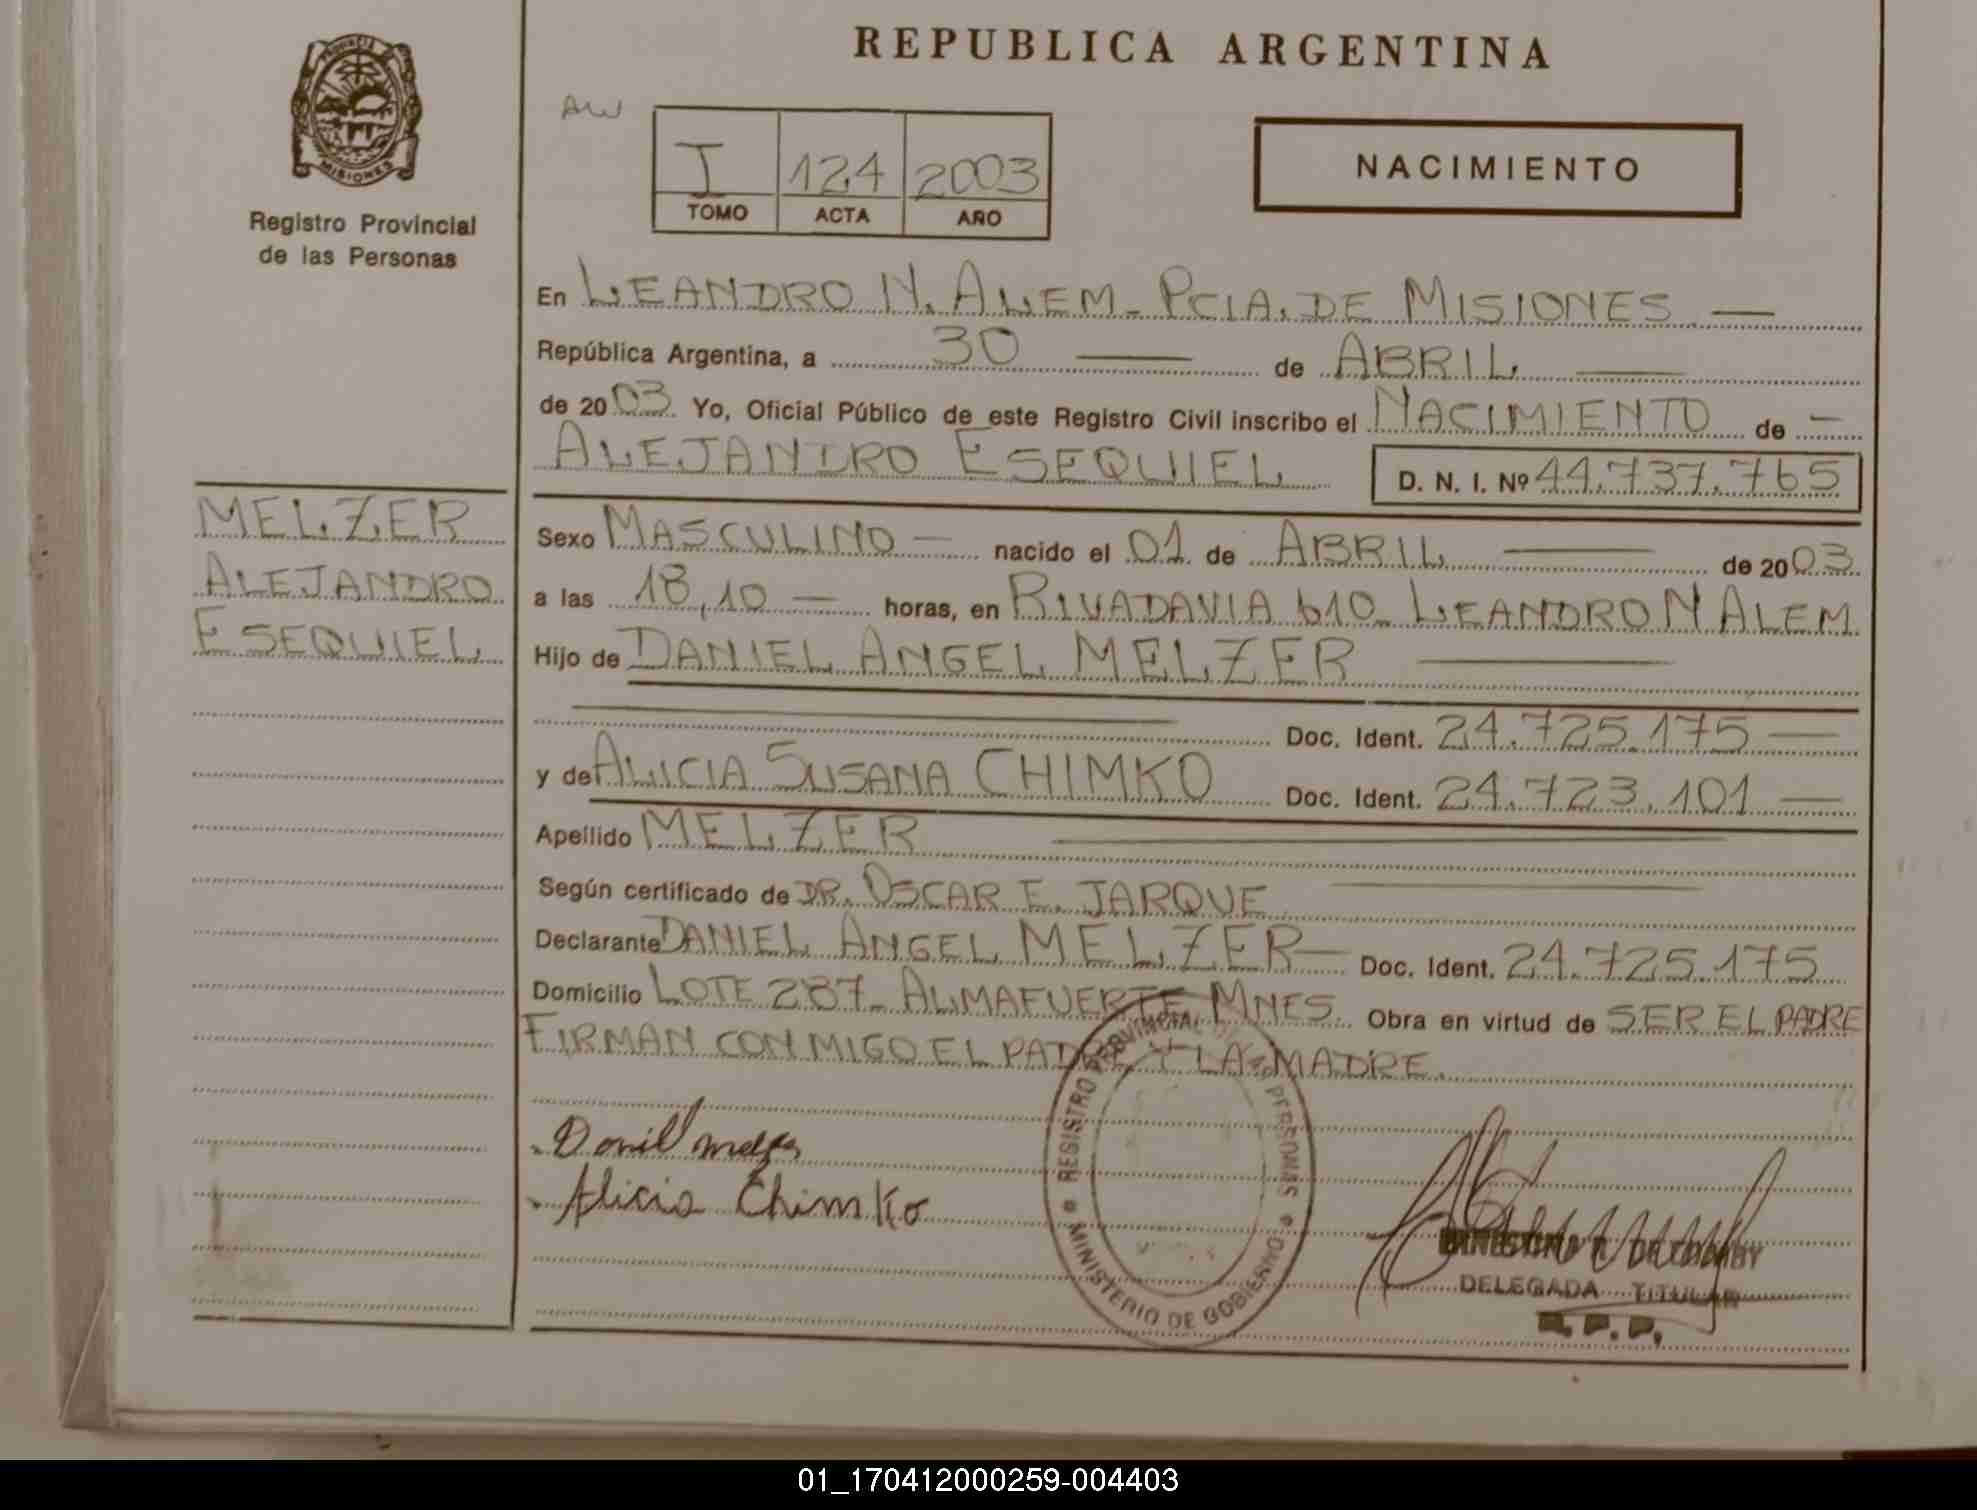 PROVINCIA
MISIONES
Registro Provincial
de las Personas
REPUBLICA ARGENTINA
AW
I 124 2003
TOMO ACTA AÑO
NACIMIENTO
En LEANDRO N. ALEM - PCIA. DE MISIONES —
República Argentina, a 30 — de ABRIL —
de 2003 Yo, Oficial Público de este Registro Civil inscribo el NACIMIENTO de —
ALEJANDRO ESEQUIEL D. N. I. Nº 44.737.765
MELZER
ALEJANDRO
ESEQUIEL
Sexo MASCULINO — nacido el 01 de ABRIL — de 2003
a las 18,10 — horas, en RIVADAVIA 610 - LEANDRO N ALEM
Hijo de DANIEL ANGEL MELZER —
— Doc. Ident. 24.725.175 —
y de ALICIA SUSANA CHIMKO Doc. Ident. 24.723.101 —
Apellido MELZER —
Según certificado de DR. OSCAR E. JARQUE —
Declarante DANIEL ANGEL MELZER — Doc. Ident. 24.725.175
Domicilio LOTE 287 - ALMAFUERTE MNES. Obra en virtud de SER EL PADRE
FIRMAN CONMIGO EL PADRE Y LA MADRE.
Alicia Chimko
REGISTRO PROVINCIAL DE LAS PERSONAS
MINISTERIO DE GOBIERNO
DELEGADA TITULAR
R. P. P.
01_170412000259-004403